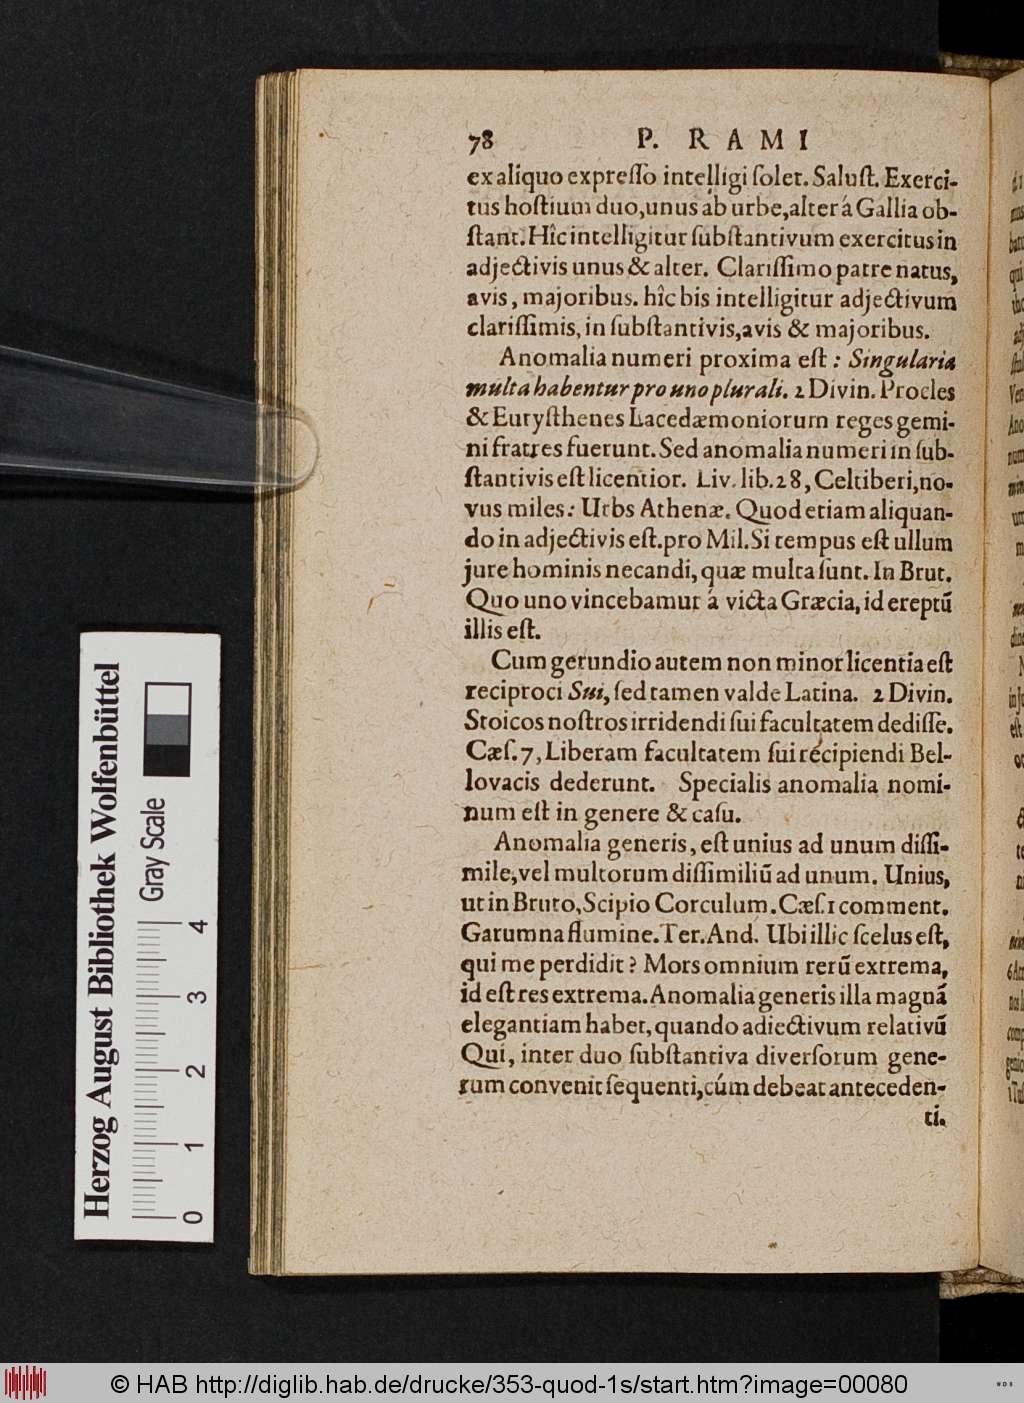 78 P. RAMI
ex aliquo expreſſo intelligi ſolet. Saluſt. Exerci-
tus hoſtium duo,unus ab urbe,alter á Gallia ob-
ſtant. Hîc intelligitur ſubſtantivum exercitus in
adjectivis unus & alter. Clariſſimo patre natus,
avis, majoribus. hîc bis intelligitur adjectivum
clariſſimis, in ſubſtantivis,avis & majoribus.
Anomalia numeri proxima eſt : Singularia
multa habentur pro uno plurali. 2 Divin. Procles
& Euryſthenes Lacedæmoniorum reges gemi-
ni fratres fuerunt. Sed anomalia numeri in ſub-
ſtantivis eſt licentior. Liv. lib. 28, Celtiberi,no-
vus miles: Urbs Athenæ. Quod etiam aliquan-
do in adjectivis eſt.pro Mil.Si tempus eſt ullum
jure hominis necandi, quæ multa ſunt. In Brut.
Quo uno vincebamur á victa Græcia, id ereptũ
illis eſt.
Cum gerundio autem non minor licentia eſt
reciproci Sui, ſed tamen valde Latina. 2 Divin.
Stoicos noſtros irridendi ſui facultatem dediſſe.
Cæſ. 7, Liberam facultatem ſui recipiendi Bel-
lovacis dederunt. Specialis anomalia nomi-
num eſt in genere & caſu.
Anomalia generis, eſt unius ad unum diſſi-
mile,vel multorum diſſimiliũ ad unum. Unius,
ut in Bruto,Scipio Corculum. Cæſ. 1 comment.
Garumna flumine. Ter. And. Ubi illic ſcelus eſt,
qui me perdidit ? Mors omnium rerũ extrema,
id eſt res extrema. Anomalia generis illa magnã
elegantiam habet, quando adiectivum relativũ
Qui, inter duo ſubſtantiva diverſorum gene-
rum convenit ſequenti,cúm debeat anteceden-
ti.
Herzog August Bibliothek Wolfenbüttel
Gray Scale
0 1 2 3 4
© HAB http://diglib.hab.de/drucke/353-quod-1s/start.htm?image=00080